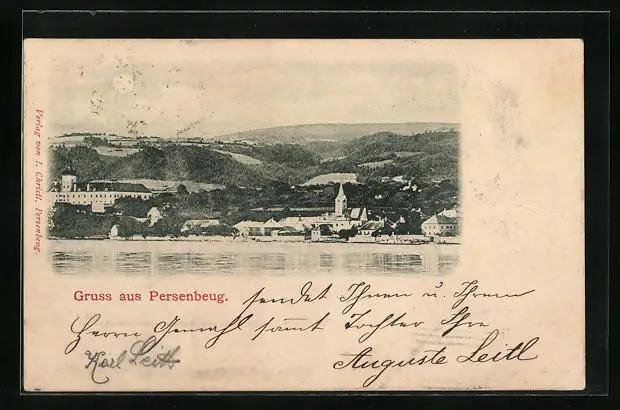 Verlag von I. Christl, Persenbeug.
Gruss aus Persenbeug.
sendet Ihnen u. Ihrem
Herrn Gemahl sammt Tochter Ihre
Karl Leitl
Auguste Leitl